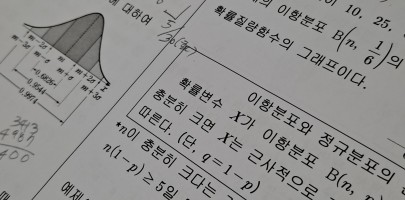 에 대하여
이 10, 25,
의 이항분포 B(n, 1/6)의
확률질량함수의 그래프이다.
m-3σ m-2σ m-σ m m+σ m+2σ m+3σ x
0.6826
0.9544
0.9974
이항분포와 정규분포의
확률변수 X가 이항분포 B(n,
충분히 크면 X는 근사적으로
따른다. (단, q=1-p)
*n이 충분히 크다는
n(1-p)≥5일
예제
400